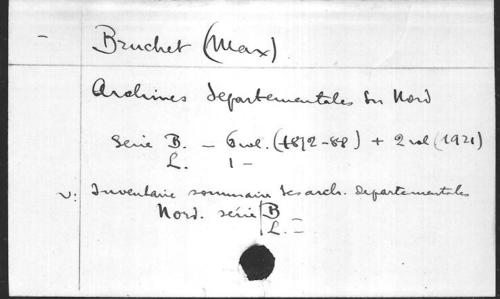 - Bruchet (Max)
Archives departementales du Nord
Série B. - 6 vol. (1872-88) + 2 vol (1921)
L. 1 -
v: Inventaire sommaire des arch. departementales
Nord. série B =
L. =